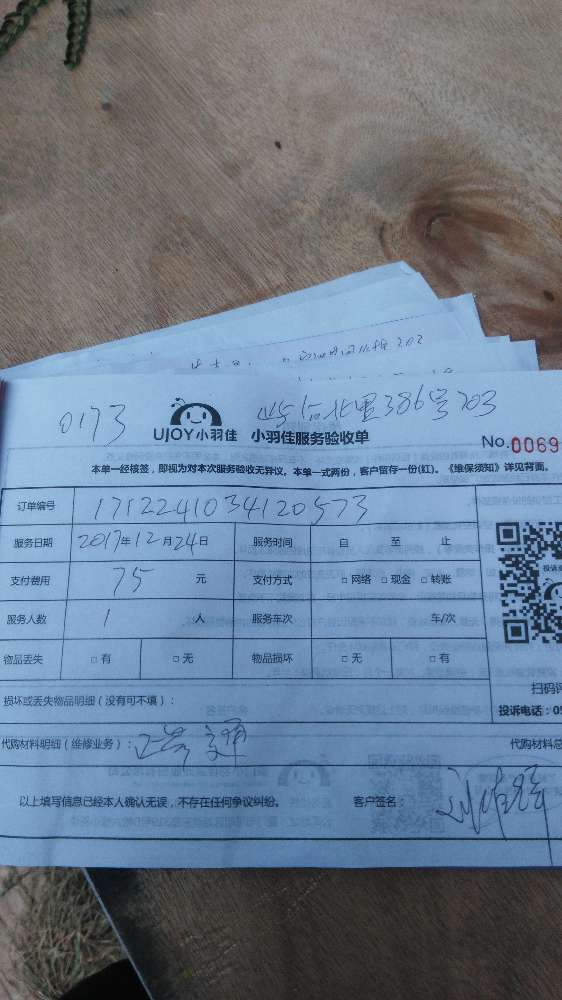 0173
北里386号703
UJOY小羽佳 小羽佳服务验收单
No.0069
本单一经核签，即视为对本次服务验收无异议。本单一式两份，客户留存一份(红)。《维保须知》详见背面。
订单编号 1712241034120573
服务日期 2017年12月24日 服务时间 自 至 止
支付费用 75 元 支付方式 □网络 □现金 □转账
服务人数 1 人 服务车次 车/次
物品丢失 □有 □无 物品损坏 □无 □有
扫码评
损坏或丢失物品明细（没有可不填）：
投诉电话：05
代购材料明细（维修业务）：
代购材料总
以上填写信息已经本人确认无误，不存在任何争议纠纷。 客户签名：